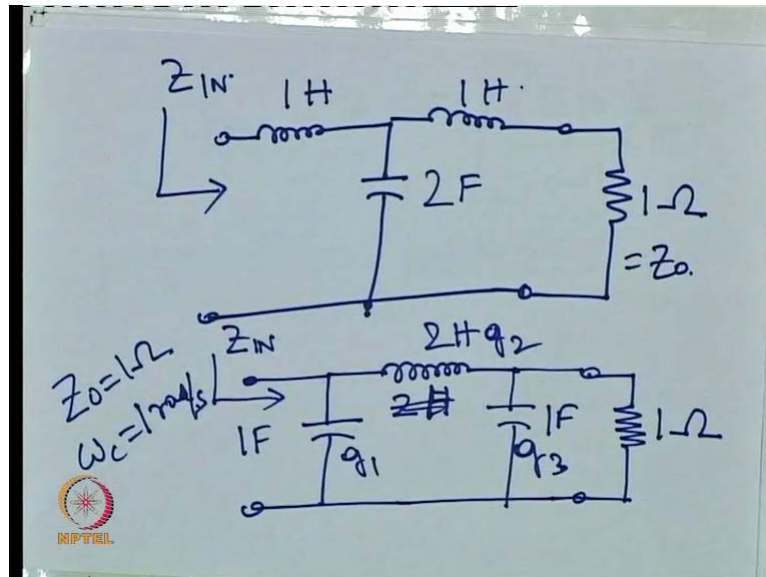 ZIN.
1H
1H.
2F
1Ω
=Z0.
Z0=1Ω
ωc=1rad/s
ZIN
2H g2
2H
1F
g1
1F
g3
1Ω
NPTEL